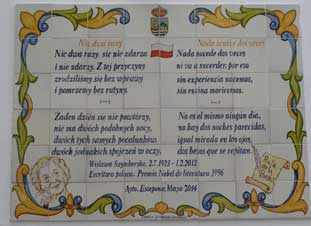 Nic dwa razy
Nic dwa razy się nie zdarza
i nie zdarzy. Z tej przyczyny
zrodziliśmy się bez wprawy
i pomrzemy bez rutyny.
(...)
Żaden dzień się nie powtórzy,
nie ma dwóch podobnych nocy,
dwóch tych samych pocałunków,
dwóch jednakich spojrzeń w oczy.
Nada sucede dos veces
ni va a suceder, por eso
sin experiencia nacemos,
sin rutina moriremos.
(...)
No es el mismo ningún día,
no hay dos noches parecidas,
igual mirada en los ojos,
dos besos que se repitan.
Wisława Szymborska, 2.7.1923 - 1.2.2012
Escritora polaca. Premio Nobel de literatura 1996
Ayto. Estepona, Mayo 2014